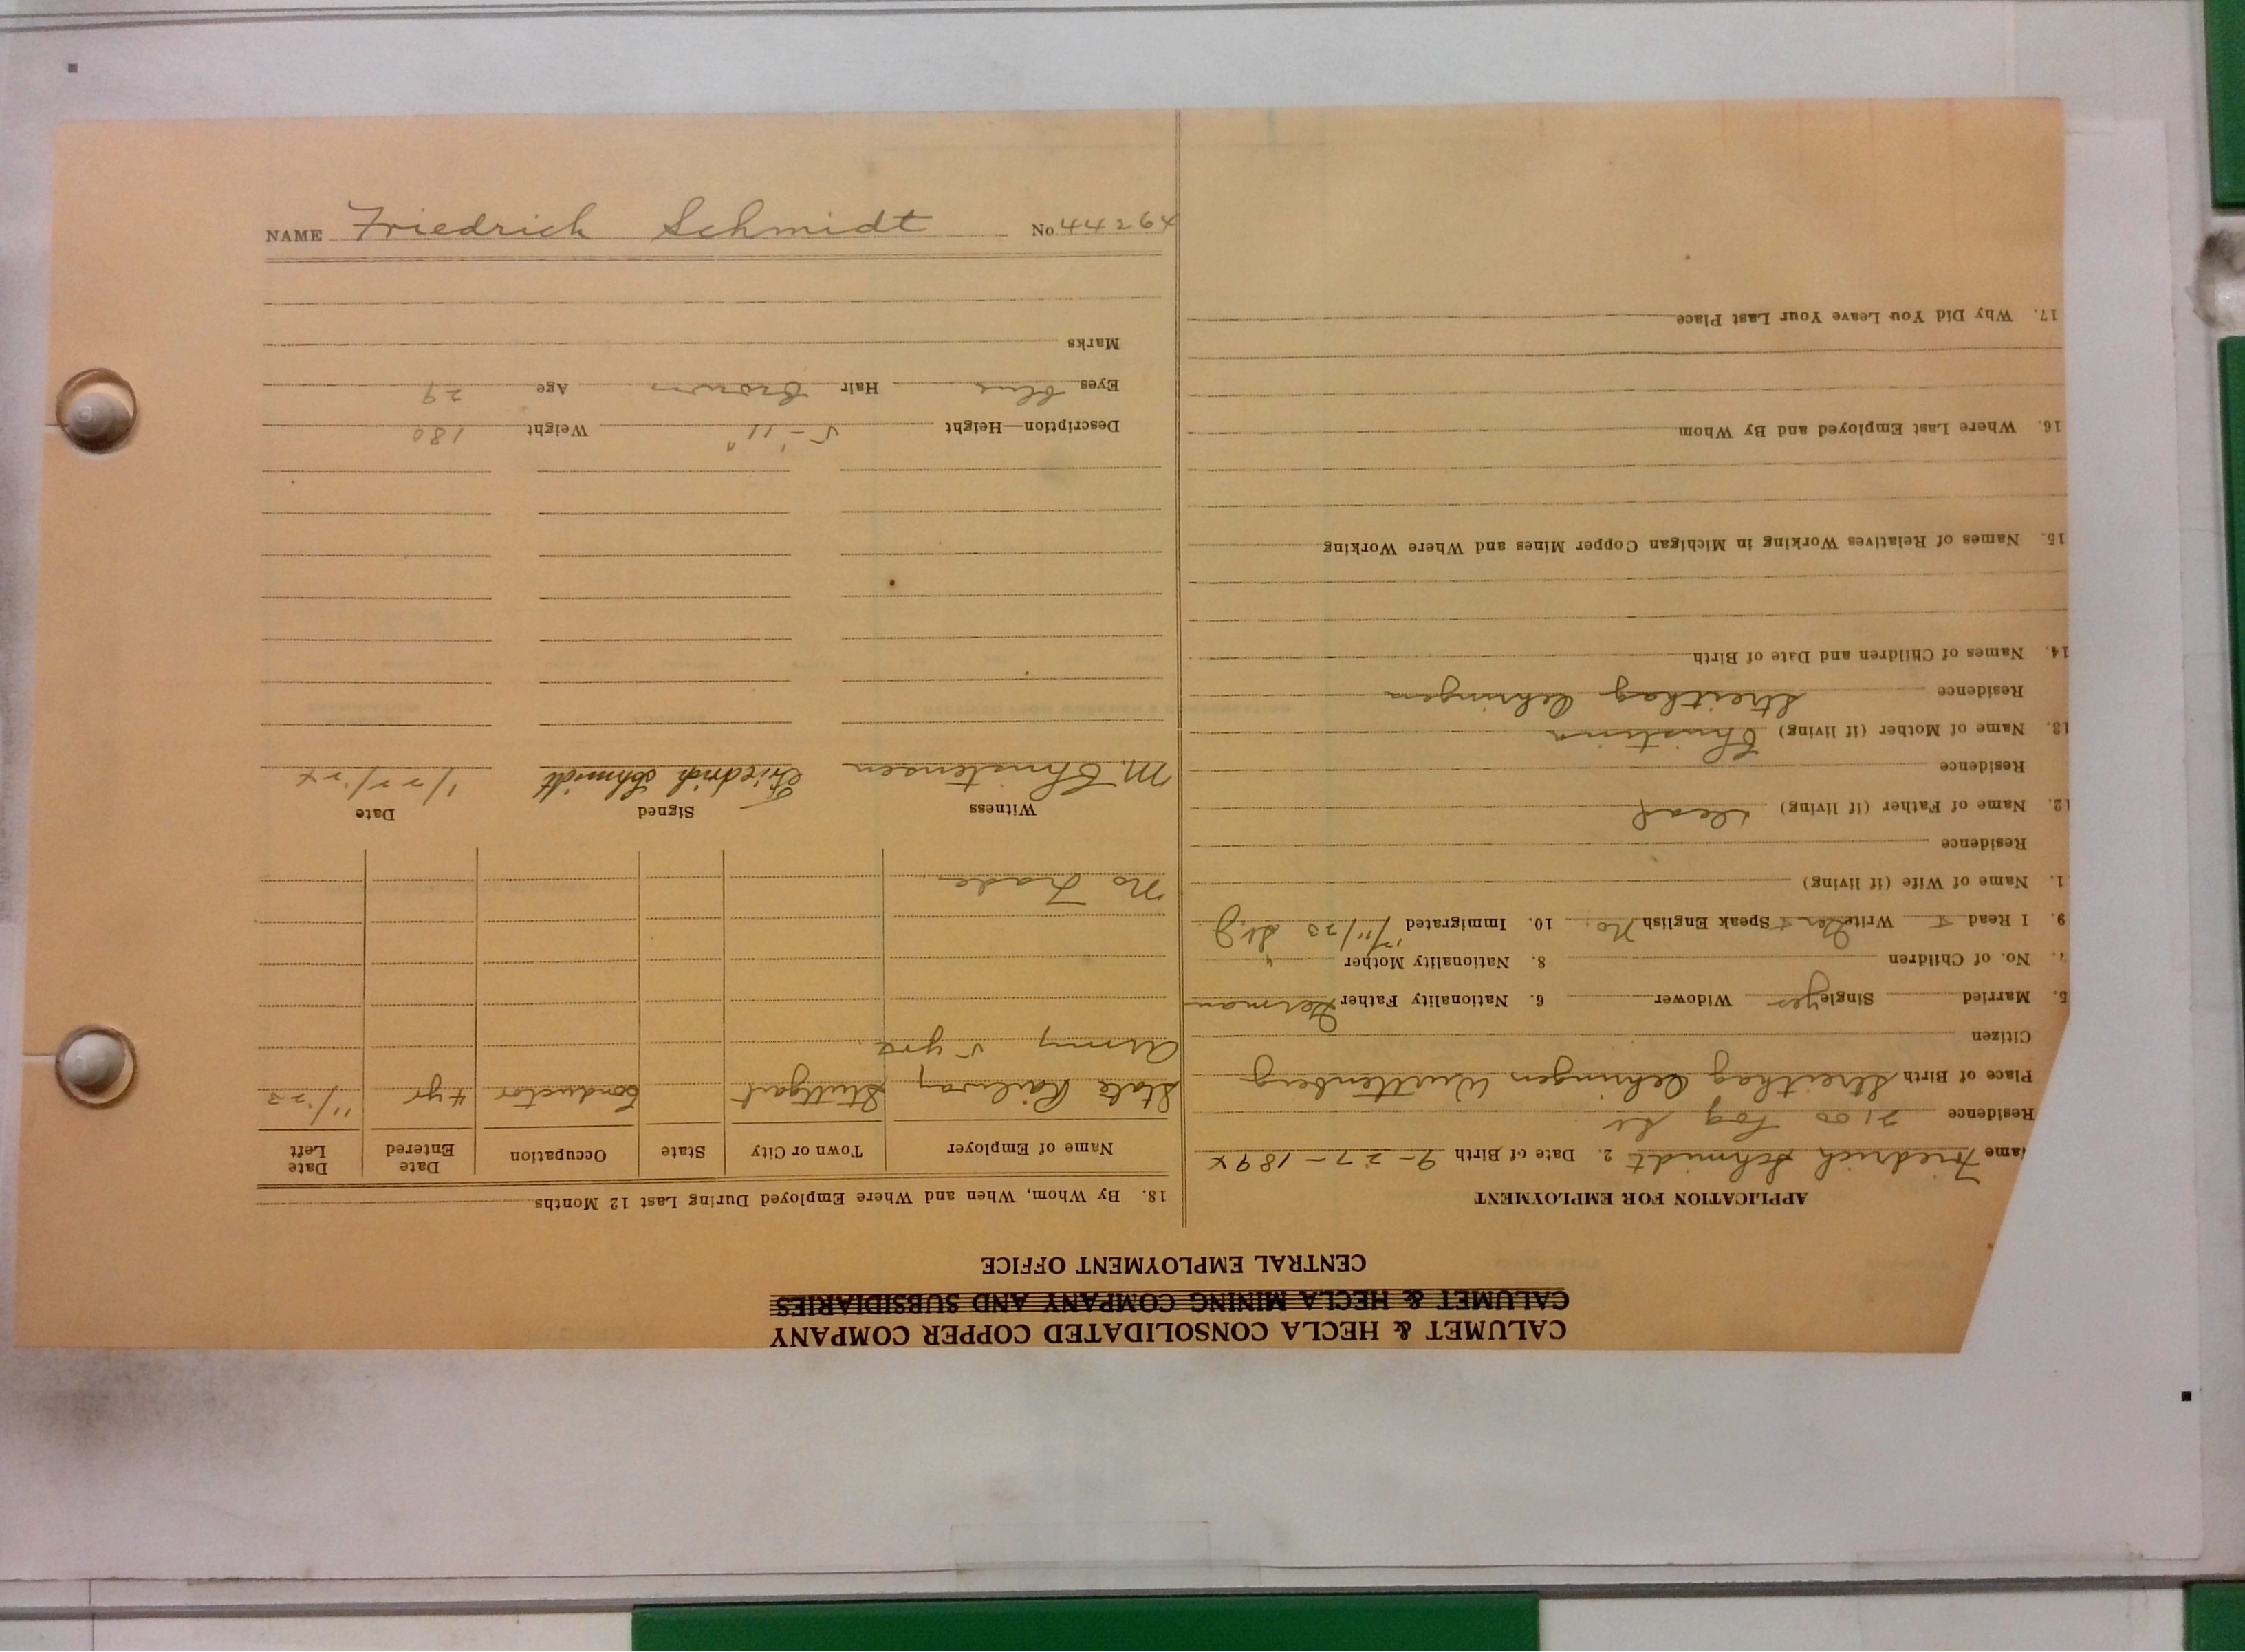 NAME Friedrich Schmidt No 44264
CALUMET & HECLA CONSOLIDATED COPPER COMPANY
CALUMET & HECLA MINING COMPANY AND SUBSIDIARIES
CENTRAL EMPLOYMENT OFFICE
APPLICATION FOR EMPLOYMENT
ame Friedrich Schmidt 2. Date of Birth 9-27-1894
Residence 2100 Log St
Place of Birth Streithag Oehringen Wurttenberg
Citizen
5. Married Single yes Widower 6. Nationality Father German
No. of Children 8. Nationality Mother "
9. I Read + Write Ger + Speak English No. 10. Immigrated 11/23
1. Name of Wife (if living)
Residence
12. Name of Father (if living) dead
Residence
13. Name of Mother (if living) Christina
Residence Streithag Oehringen
14. Names of Children and Date of Birth
15. Names of Relatives Working in Michigan Copper Mines and Where Working
16. Where Last Employed and By Whom
17. Why Did You Leave Your Last Place
18. By Whom, When and Where Employed During Last 12 Months
Name of Employer Town or City State Occupation Date Entered Date Left
State Railway Stuttgart Conductor 4 yr 11/23
Army 5 yrs.
No Trade.
Witness Signed Date
M. Christensen Friedrich Schmidt 1/22/24
Description—Height 5'-11" Weight 180
Eyes blue Hair Brown Age 29
Marks